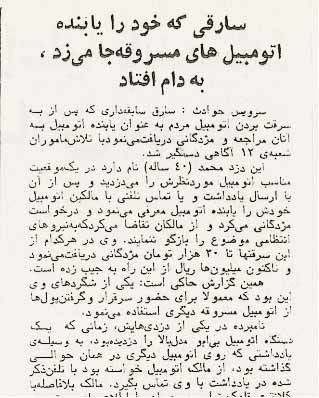 سارقی که خود را یابنده
اتومبیل های مسروقه جا می‌زد ،
به دام افتاد
سرویس حوادث : سارق سابقه‌داری که پس از به
سرقت بردن اتومبیل مردم به عنوان یابنده اتومبیل به
آنان مراجعه و مژدگانی دریافت می‌نمود با تلاش ماموران
شعبه‌ی ۱۲ آگاهی دستگیر شد.
این دزد محمد (۴۰ ساله) نام دارد در یک موقعیت
مناسب اتومبیل موردنظرش را می‌دزدید و پس از آن
با ارسال یادداشت و یا تماس تلفنی با مالکین اتومبیل
خودش را یابنده اتومبیل معرفی می‌نمود و درخواست
مژدگانی می‌کرد و از مالکان تقاضا می‌کرد که به نیروهای
انتظامی موضوع را بازگو ننمایند. وی در هرکدام از
این سرقتها تا ۳۰ هزار تومان مژدگانی دریافت می‌نمود
و تاکنون میلیون‌ها ریال از این راه به جیب زده است.
همین گزارش حاکی است: یکی از شگردهای وی
این بود که معمولا برای حضور سرقرار و گرفتن پول‌ها
از اتومبیل مسروقه دیگری استفاده می‌نمود.
نامبرده در یکی از دزدی‌هایش، زمانی که یک
دستگاه اتومبیل بی‌ام‌و مدل بالا را دزدیده بود، به وسیله‌ی
یادداشتی که روی اتومبیل دیگری در همان حوالی
گذاشته بود، از مالک اتومبیل خواسته بود با تلفن ذکر
شده در یادداشت با وی تماس بگیرد. مالک بلافاصله با